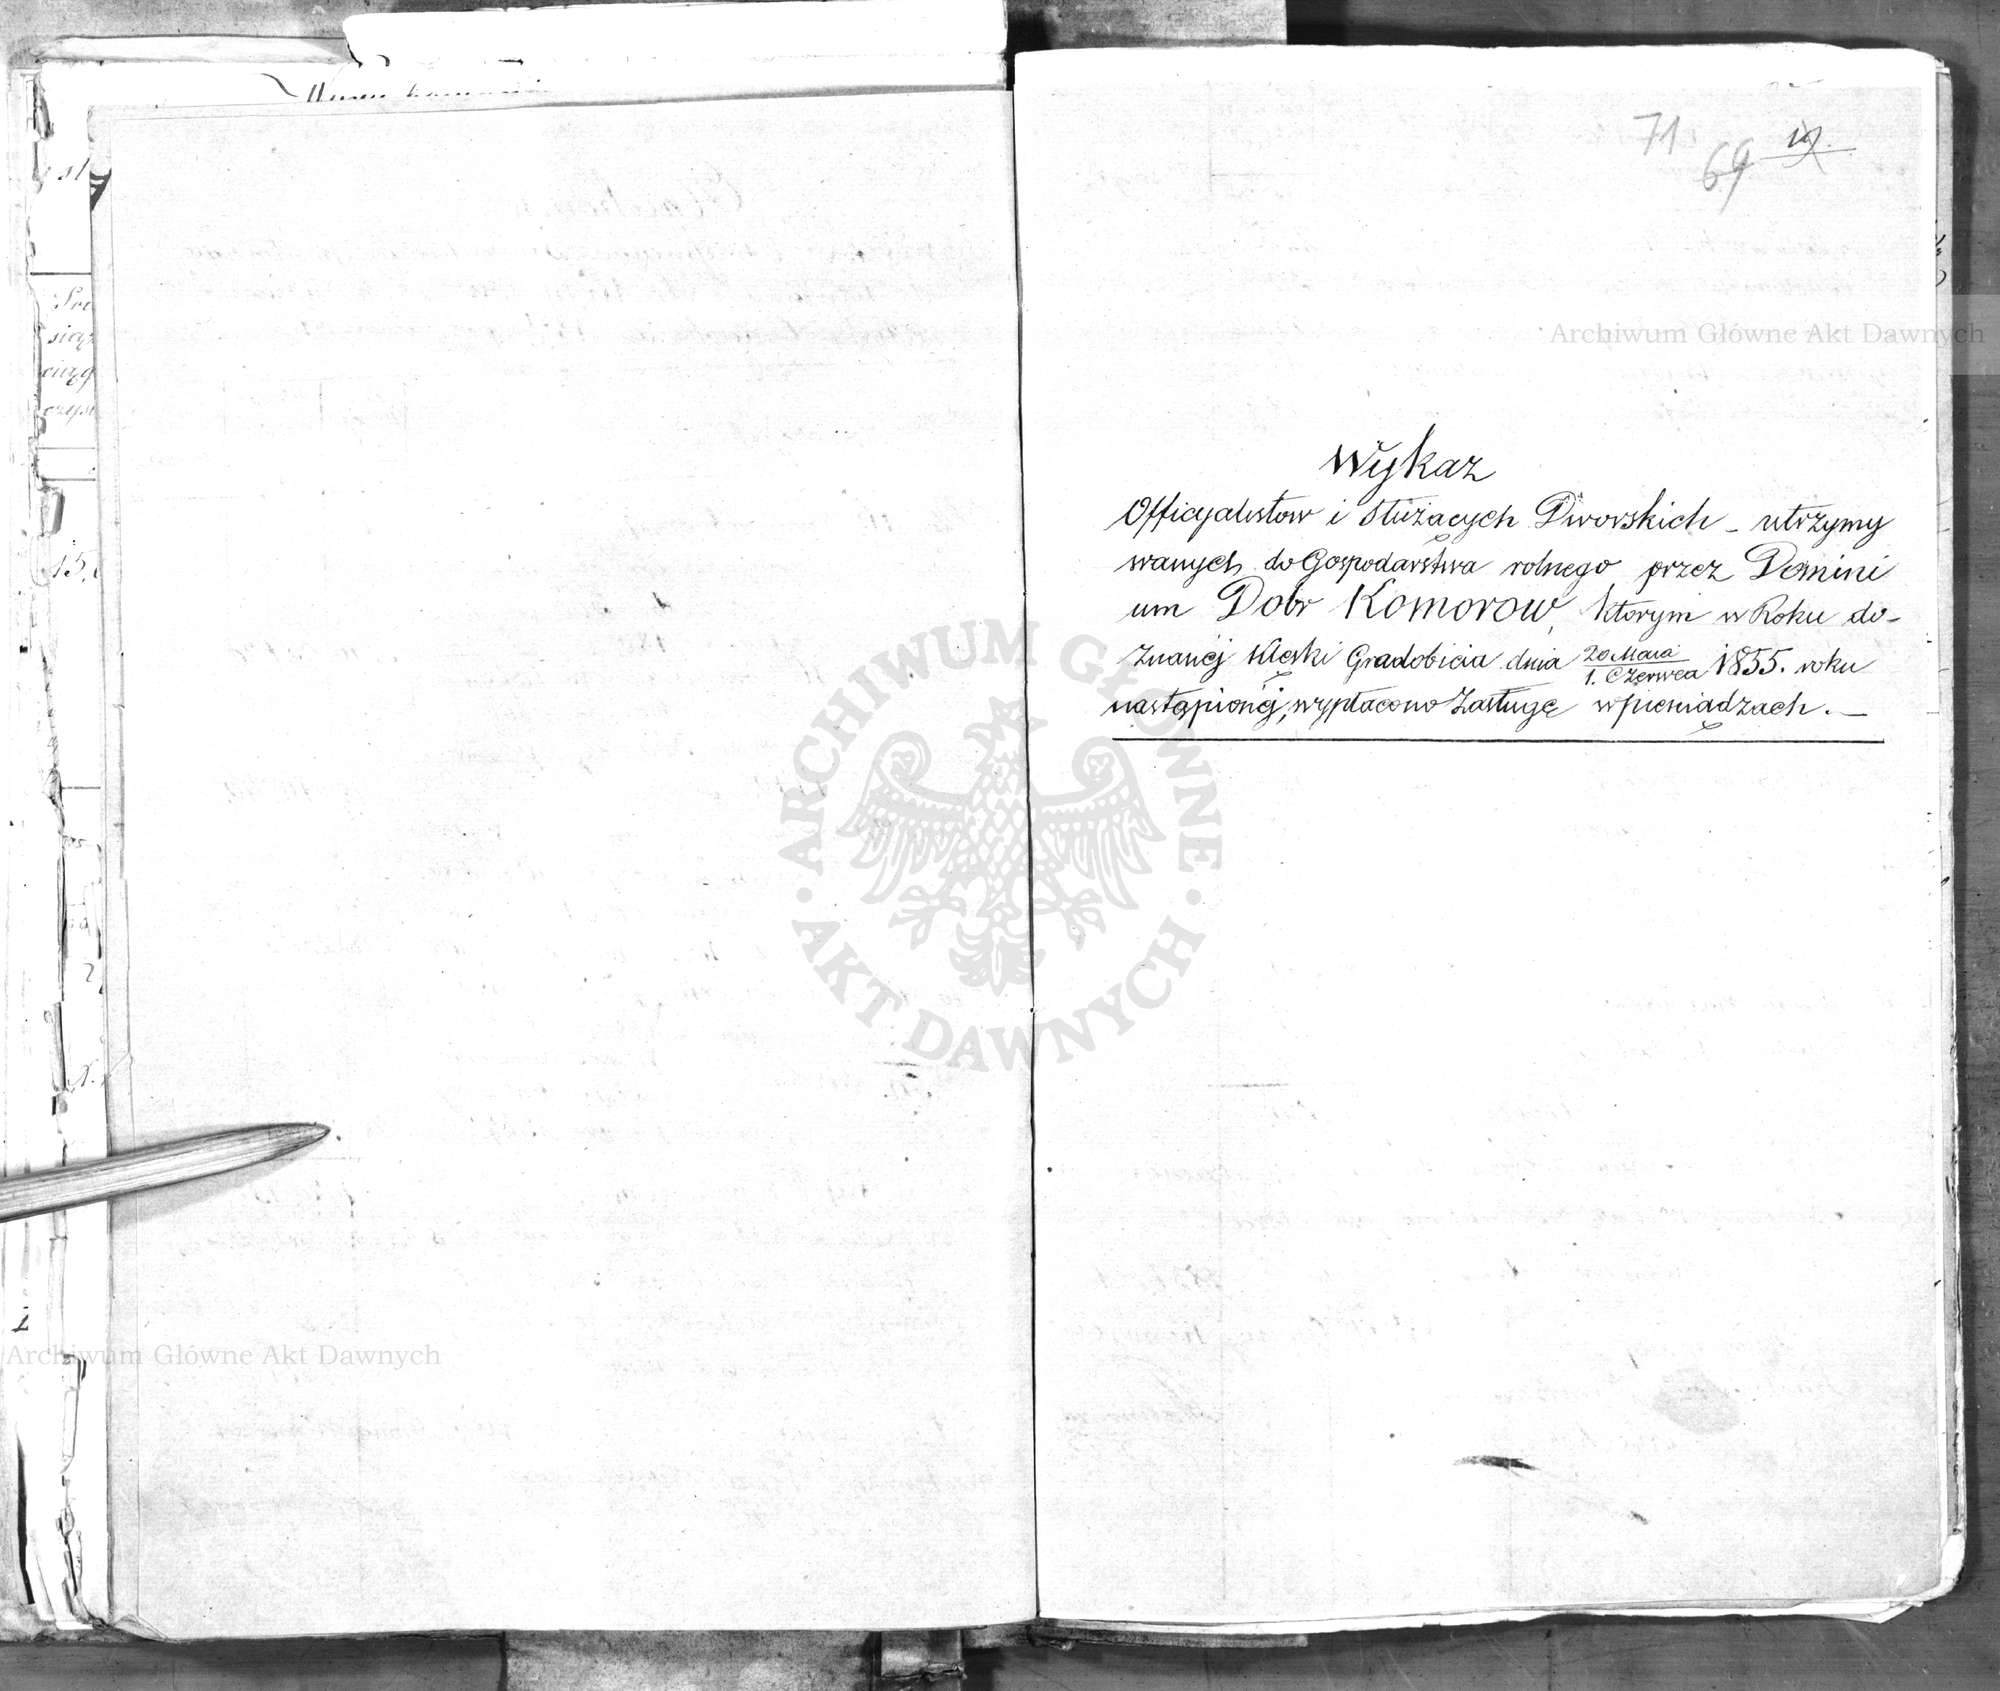 71.
69
19.
Wykaz
Officyalistow i Służacych Dworskich - utrzymy
wanych do Gospodarstwa rolnego przez Domini
um Dobr Komorow, ktorym w Roku do-
znanéj klęski Gradobicia dnia 20 Maia / 1. Czerwca 1855. roku
nastąpionéj, wypłacono Zasługę w pieniądzach. —
Archiwum Główne Akt Dawnych
ARCHIWUM GŁÓWNE
AKT DAWNYCH
Archiwum Główne Akt Dawnych